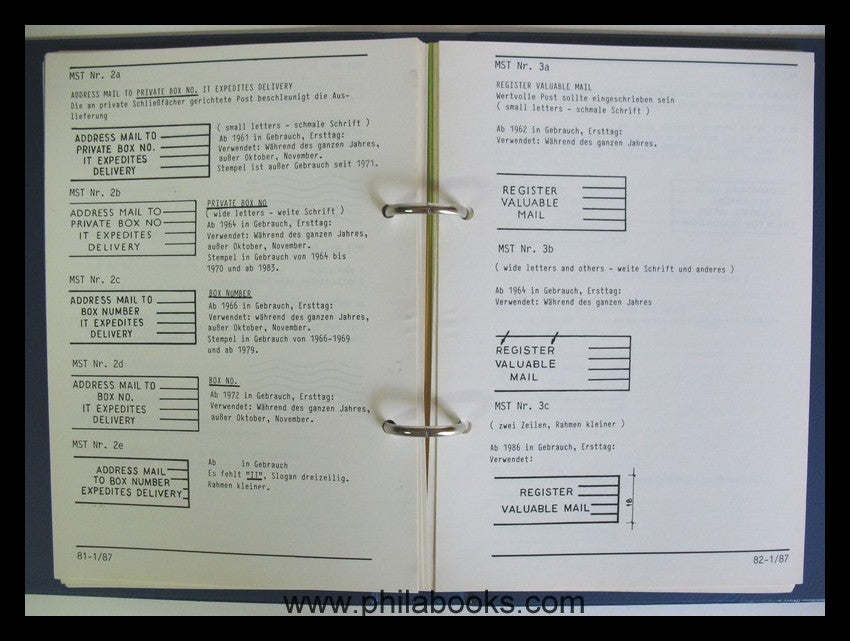 MST Nr. 2a
ADDRESS MAIL TO PRIVATE BOX NO. IT EXPEDITES DELIVERY
Die an private Schließfächer gerichtete Post beschleunigt die Aus-
lieferung
ADDRESS MAIL TO
PRIVATE BOX NO.
IT EXPEDITES
DELIVERY
( small letters - schmale Schrift )
Ab 1961 in Gebrauch, Ersttag:
Verwendet: Während des ganzen Jahres,
außer Oktober, November.
Stempel ist außer Gebrauch seit 1971.
MST Nr. 2b
ADDRESS MAIL TO
PRIVATE BOX NO
IT EXPEDITES
DELIVERY
PRIVATE BOX NO
( wide letters - weite Schrift )
Ab 1964 in Gebrauch, Ersttag:
Verwendet: Während des ganzen Jahres,
außer Oktober, November.
Stempel in Gebrauch von 1964 bis
1970 und ab 1983.
MST Nr. 2c
ADDRESS MAIL TO
BOX NUMBER
IT EXPEDITES
DELIVERY
BOX NUMBER
Ab 1966 in Gebrauch, Ersttag:
Verwendet: während des ganzen Jahres,
außer Oktober, November.
Stempel in Gebrauch von 1966-1969
und ab 1979.
MST Nr. 2d
ADDRESS MAIL TO
BOX NO.
IT EXPEDITES
DELIVERY
BOX NO.
Ab 1972 in Gebrauch, Ersttag:
Verwendet: Während des ganzen Jahres,
außer Oktober, November.
MST Nr. 2e
ADDRESS MAIL
TO BOX NUMBER
EXPEDITES DELIVERY
Ab in Gebrauch
Es fehlt "II", Slogan dreizeilig.
Rahmen kleiner.
81-1/87
MST Nr. 3a
REGISTER VALUABLE MAIL
Wertvolle Post sollte eingeschrieben sein
( small letters - schmale Schrift )
Ab 1962 in Gebrauch, Ersttag:
Verwendet: Während des ganzen Jahres.
REGISTER
VALUABLE
MAIL
MST Nr. 3b
( wide letters and others - weite Schrift und anderes )
Ab 1964 in Gebrauch, Ersttag:
Verwendet: Während des ganzen Jahres
REGISTER
VALUABLE
MAIL
MST Nr. 3c
( zwei Zeilen, Rahmen kleiner )
Ab 1986 in Gebrauch, Ersttag:
Verwendet:
REGISTER
VALUABLE MAIL
18
82-1/87
www.philabooks.com